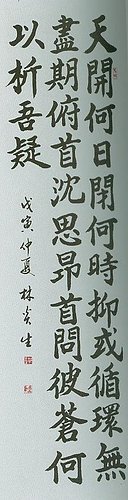 天開何日閉何時抑或循環無
盡期俯首沈思昂首問彼蒼何
以析吾疑
戊寅仲夏林炎生